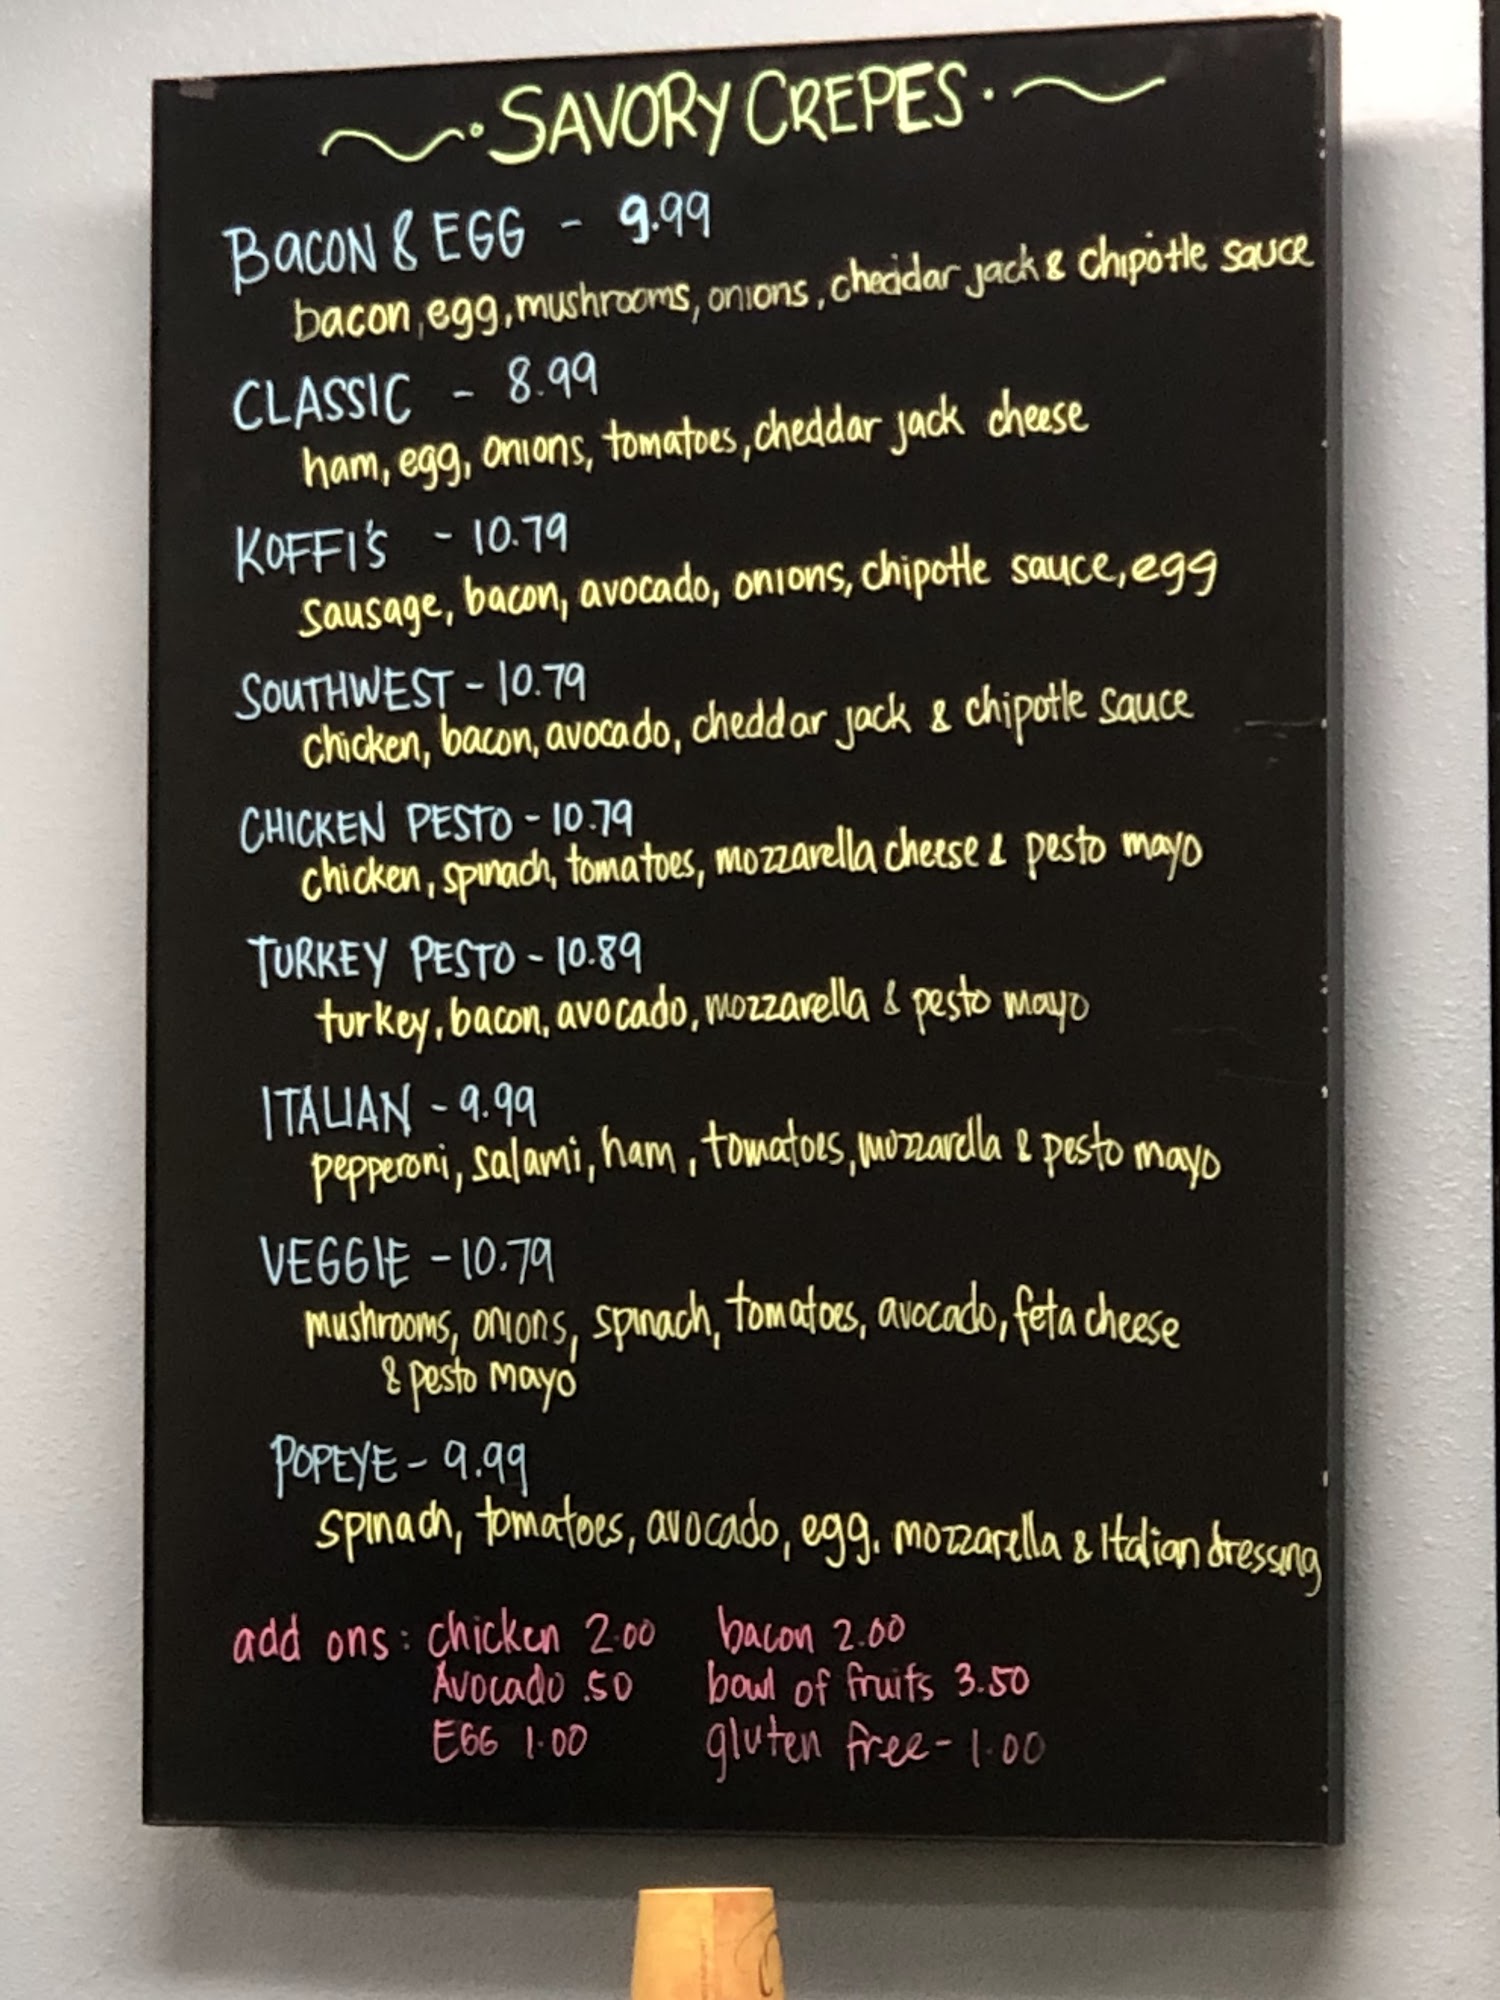 SAVORY CREPES
BACON & EGG - 9.99
bacon, egg, mushrooms, onions, cheddar jack & chipotle sauce
CLASSIC - 8.99
ham, egg, onions, tomatoes, cheddar jack cheese
KOFFI'S - 10.79
sausage, bacon, avocado, onions, chipotle sauce, egg
SOUTHWEST - 10.79
chicken, bacon, avocado, cheddar jack & chipotle sauce
CHICKEN PESTO - 10.79
chicken, spinach, tomatoes, mozzarella cheese & pesto mayo
TURKEY PESTO - 10.89
turkey, bacon, avocado, mozzarella & pesto mayo
ITALIAN - 9.99
pepperoni, salami, ham, tomatoes, mozzarella & pesto mayo
VEGGIE - 10.79
mushrooms, onions, spinach, tomatoes, avocado, feta cheese
& pesto mayo
POPEYE - 9.99
spinach, tomatoes, avocado, egg, mozzarella & Italian dressing
add ons: chicken 2.00 bacon 2.00
Avocado .50 bowl of fruits 3.50
EGG 1.00 gluten free - 1.00